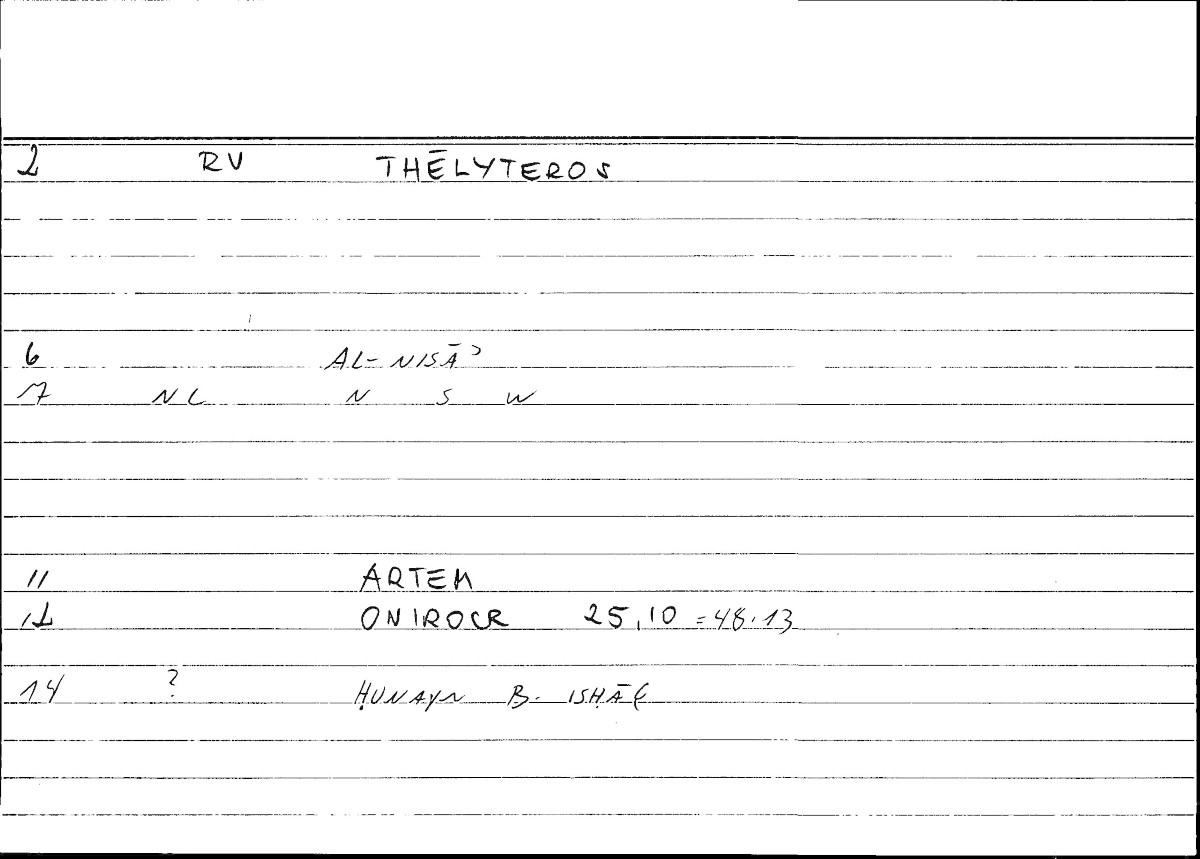 2 RV THĒLYTEROS
6 AL-NISĀʾ
7 NL N S W
11 ARTEM
12 ONIROCR 25,10 = 48.13
14 ? ḤUNAYN B. ISḤĀḲ